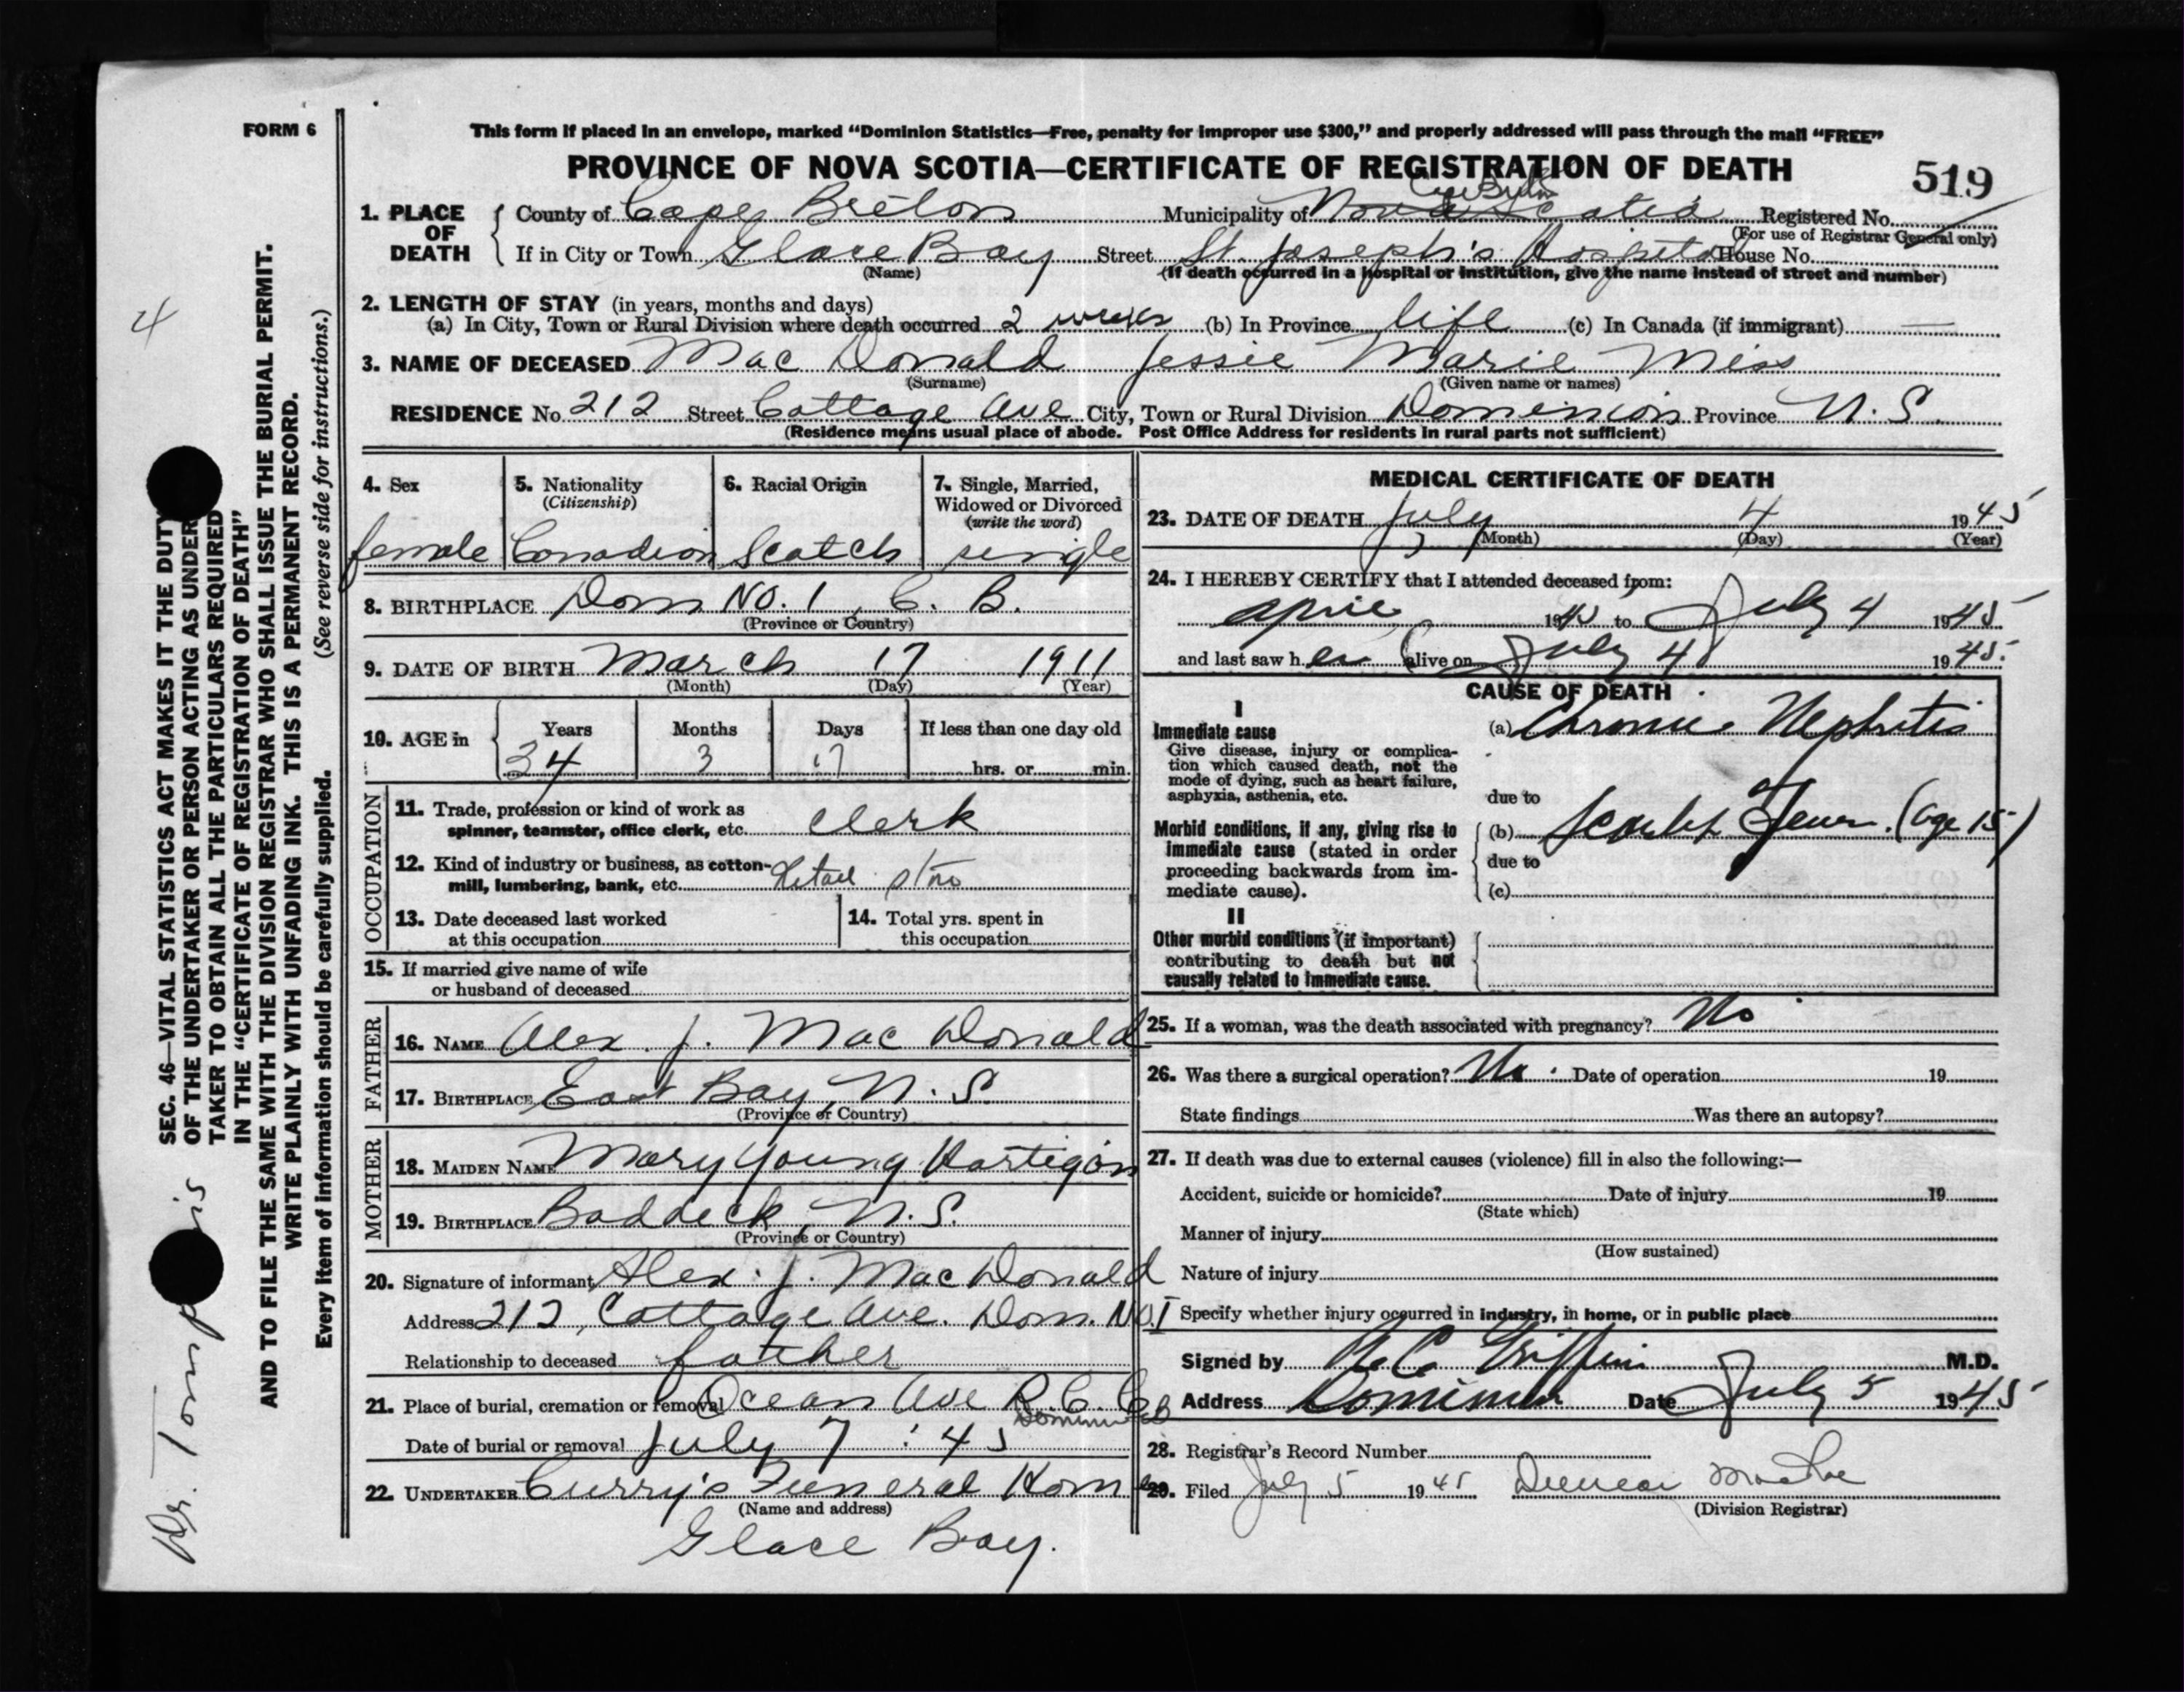 FORM 6
This form if placed in an envelope, marked "Dominion Statistics—Free, penalty for improper use $300," and properly addressed will pass through the mail "FREE"
PROVINCE OF NOVA SCOTIA—CERTIFICATE OF REGISTRATION OF DEATH
519
1. PLACE OF DEATH
County of Cape Breton Municipality of Nova Scotia Cape Breton Registered No.
(For use of Registrar General only)
If in City or Town Glace Bay Street St. Joseph's Hospital House No.
(Name) (If death occurred in a hospital or institution, give the name instead of street and number)
2. LENGTH OF STAY (in years, months and days)
(a) In City, Town or Rural Division where death occurred 2 weeks (b) In Province life (c) In Canada (if immigrant) —
3. NAME OF DECEASED Mac Donald Jessie Marie Miss
(Surname) (Given name or names)
RESIDENCE No. 212 Street Cottage Ave City, Town or Rural Division Dominion Province N. S.
(Residence means usual place of abode. Post Office Address for residents in rural parts not sufficient)
4. Sex
female
5. Nationality
(Citizenship)
Canadian
6. Racial Origin
Scotch
7. Single, Married,
Widowed or Divorced
(write the word)
single
8. BIRTHPLACE Dom No. 1, C. B.
(Province or Country)
9. DATE OF BIRTH March 17 1911
(Month) (Day) (Year)
10. AGE in
Years Months Days If less than one day old
34 3 17 hrs. or min.
OCCUPATION
11. Trade, profession or kind of work as
spinner, teamster, office clerk, etc. clerk
12. Kind of industry or business, as cotton-
mill, lumbering, bank, etc. Retail store
13. Date deceased last worked
at this occupation
14. Total yrs. spent in
this occupation
15. If married give name of wife
or husband of deceased
FATHER
16. NAME Alex. J. Mac Donald
17. BIRTHPLACE East Bay, N. S.
(Province or Country)
MOTHER
18. MAIDEN NAME Mary Young Hartigan
19. BIRTHPLACE Baddeck, N.S.
(Province or Country)
20. Signature of informant Alex. J. MacDonald
Address 212, Cottage Ave. Dom. No. 1
Relationship to deceased father
21. Place of burial, cremation or removal Ocean Ave R. C. C
Dominion CB
Date of burial or removal July 7 : 45
22. UNDERTAKER Curry's Funeral Home
(Name and address)
Glace Bay.
MEDICAL CERTIFICATE OF DEATH
23. DATE OF DEATH July 4 1945
(Month) (Day) (Year)
24. I HEREBY CERTIFY that I attended deceased from:
April 19 to July 4 1945
and last saw her alive on July 4 1945.
CAUSE OF DEATH
I
Immediate cause
Give disease, injury or complica-
tion which caused death, not the
mode of dying, such as heart failure,
asphyxia, asthenia, etc.
(a) Chronic Nephritis
due to
Morbid conditions, if any, giving rise to
immediate cause (stated in order
proceeding backwards from im-
mediate cause).
(b) Scarlet Fever. (age 15)
due to
(c)
II
Other morbid conditions (if important)
contributing to death but not
causally related to immediate cause.
25. If a woman, was the death associated with pregnancy? No
26. Was there a surgical operation? No. Date of operation 19
State findings Was there an autopsy?
27. If death was due to external causes (violence) fill in also the following:—
Accident, suicide or homicide? Date of injury 19
(State which)
Manner of injury
(How sustained)
Nature of injury
Specify whether injury occurred in industry, in home, or in public place
Signed by Griffin M.D.
Address Dominion Date July 5 1945
28. Registrar's Record Number
29. Filed July 5 1945 Duncan
(Division Registrar)
4
SEC. 46—VITAL STATISTICS ACT MAKES IT THE DUTY
OF THE UNDERTAKER OR PERSON ACTING AS UNDER
TAKER TO OBTAIN ALL THE PARTICULARS REQUIRED
IN THE "CERTIFICATE OF REGISTRATION OF DEATH"
AND TO FILE THE SAME WITH THE DIVISION REGISTRAR WHO SHALL ISSUE THE BURIAL PERMIT.
WRITE PLAINLY WITH UNFADING INK. THIS IS A PERMANENT RECORD.
Every item of information should be carefully supplied. (See reverse side for instructions.)
Dr.